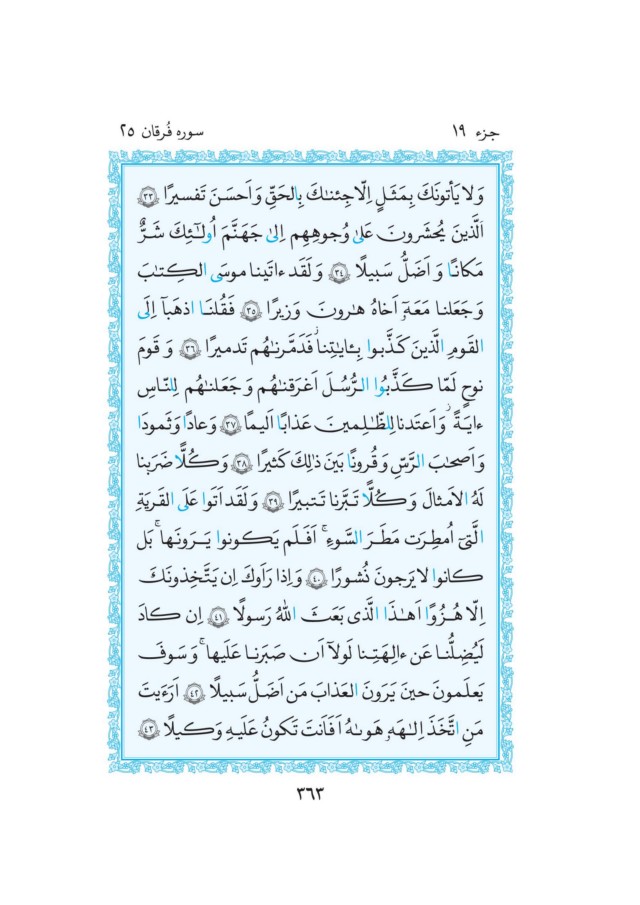 جزء ۱۹
سوره فُرقان ۲۵
وَلا يَأتونَكَ بِمَثَلٍ اِلّا جِئنٰكَ بِالحَقِّ وَ اَحسَنَ تَفسيرًا ﴿۳۳﴾
اَلَّذينَ يُحشَرونَ عَلىٰ وُجوهِهِم اِلىٰ جَهَنَّمَ اُولٰئِكَ شَرٌّ
مَكانًا وَ اَضَلُّ سَبيلًا ﴿۳۴﴾ وَ لَقَد ءاتَينا موسَى الكِتٰبَ
وَ جَعَلنا مَعَهٓ اَخاهُ هٰرونَ وَزيرًا ﴿۳۵﴾ فَقُلنَا اذهَبآ اِلَى
القَومِ الَّذينَ كَذَّبوا بِـٔايٰتِنا فَدَمَّرنٰهُم تَدميرًا ﴿۳۶﴾ وَ قَومَ
نوحٍ لَمّا كَذَّبُوا الرُّسُلَ اَغرَقنٰهُم وَ جَعَلنٰهُم لِلنّاسِ
ءايَةً ۖ وَ اَعتَدنا لِلظّٰلِمينَ عَذابًا اَليمًا ﴿۳۷﴾ وَ عادًا وَ ثَمودَا۟
وَ اَصحٰبَ الرَّسِّ وَ قُرونًا بَينَ ذٰلِكَ كَثيرًا ﴿۳۸﴾ وَ كُلًّا ضَرَبنا
لَهُ الاَمثالَ وَ كُلًّا تَبَّرنا تَتبيرًا ﴿۳۹﴾ وَ لَقَد اَتَوا عَلَى القَريَةِ
الَّتىٓ اُمطِرَت مَطَرَ السَّوءِ ۚ اَفَلَم يَكونوا يَرَونَها ۚ بَل
كانوا لا يَرجونَ نُشورًا ﴿۴۰﴾ وَ اِذا رَاَوكَ اِن يَتَّخِذونَكَ
اِلّا هُزُوًا اَهٰذَا الَّذى بَعَثَ اللّٰهُ رَسولًا ﴿۴۱﴾ اِن كادَ
لَيُضِلُّنا عَن ءالِهَتِنا لَولآ اَن صَبَرنا عَلَيها ۚ وَ سَوفَ
يَعلَمونَ حينَ يَرَونَ العَذابَ مَن اَضَلُّ سَبيلًا ﴿۴۲﴾ اَرَءَيتَ
مَنِ اتَّخَذَ اِلٰهَهٗ هَوىٰهُ اَفَاَنتَ تَكونُ عَلَيهِ وَكيلًا ﴿۴۳﴾
۳۶۳